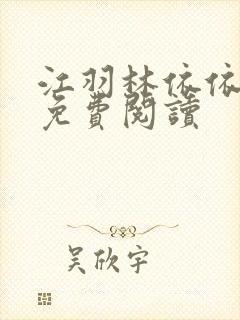 江羽林依依
免費閱讀
吳欣宇